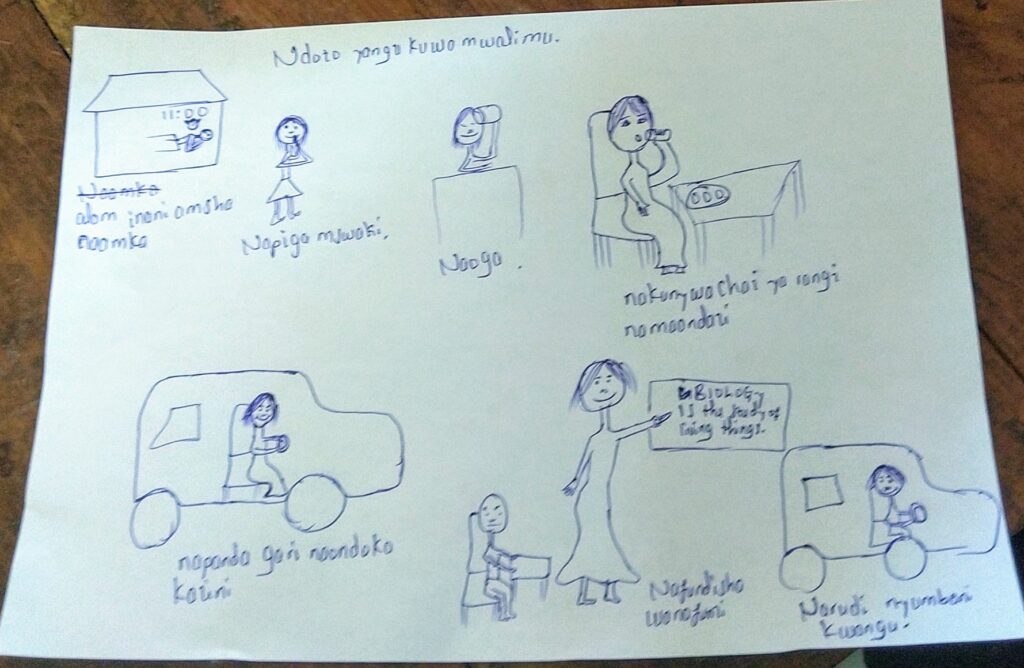 Ndoto yangu kuwa mwalimu.
11:00
Naamka
alam inaniamsha
naamka
Napiga mswaki.
Naoga.
nakunywa chai ya rangi
namaandazi
napanda gari naondoka
kazini
BIOLOGY
Is the study of
living things.
Nafundisha
wanafunzi
Narudi nyumbani
kwangu.